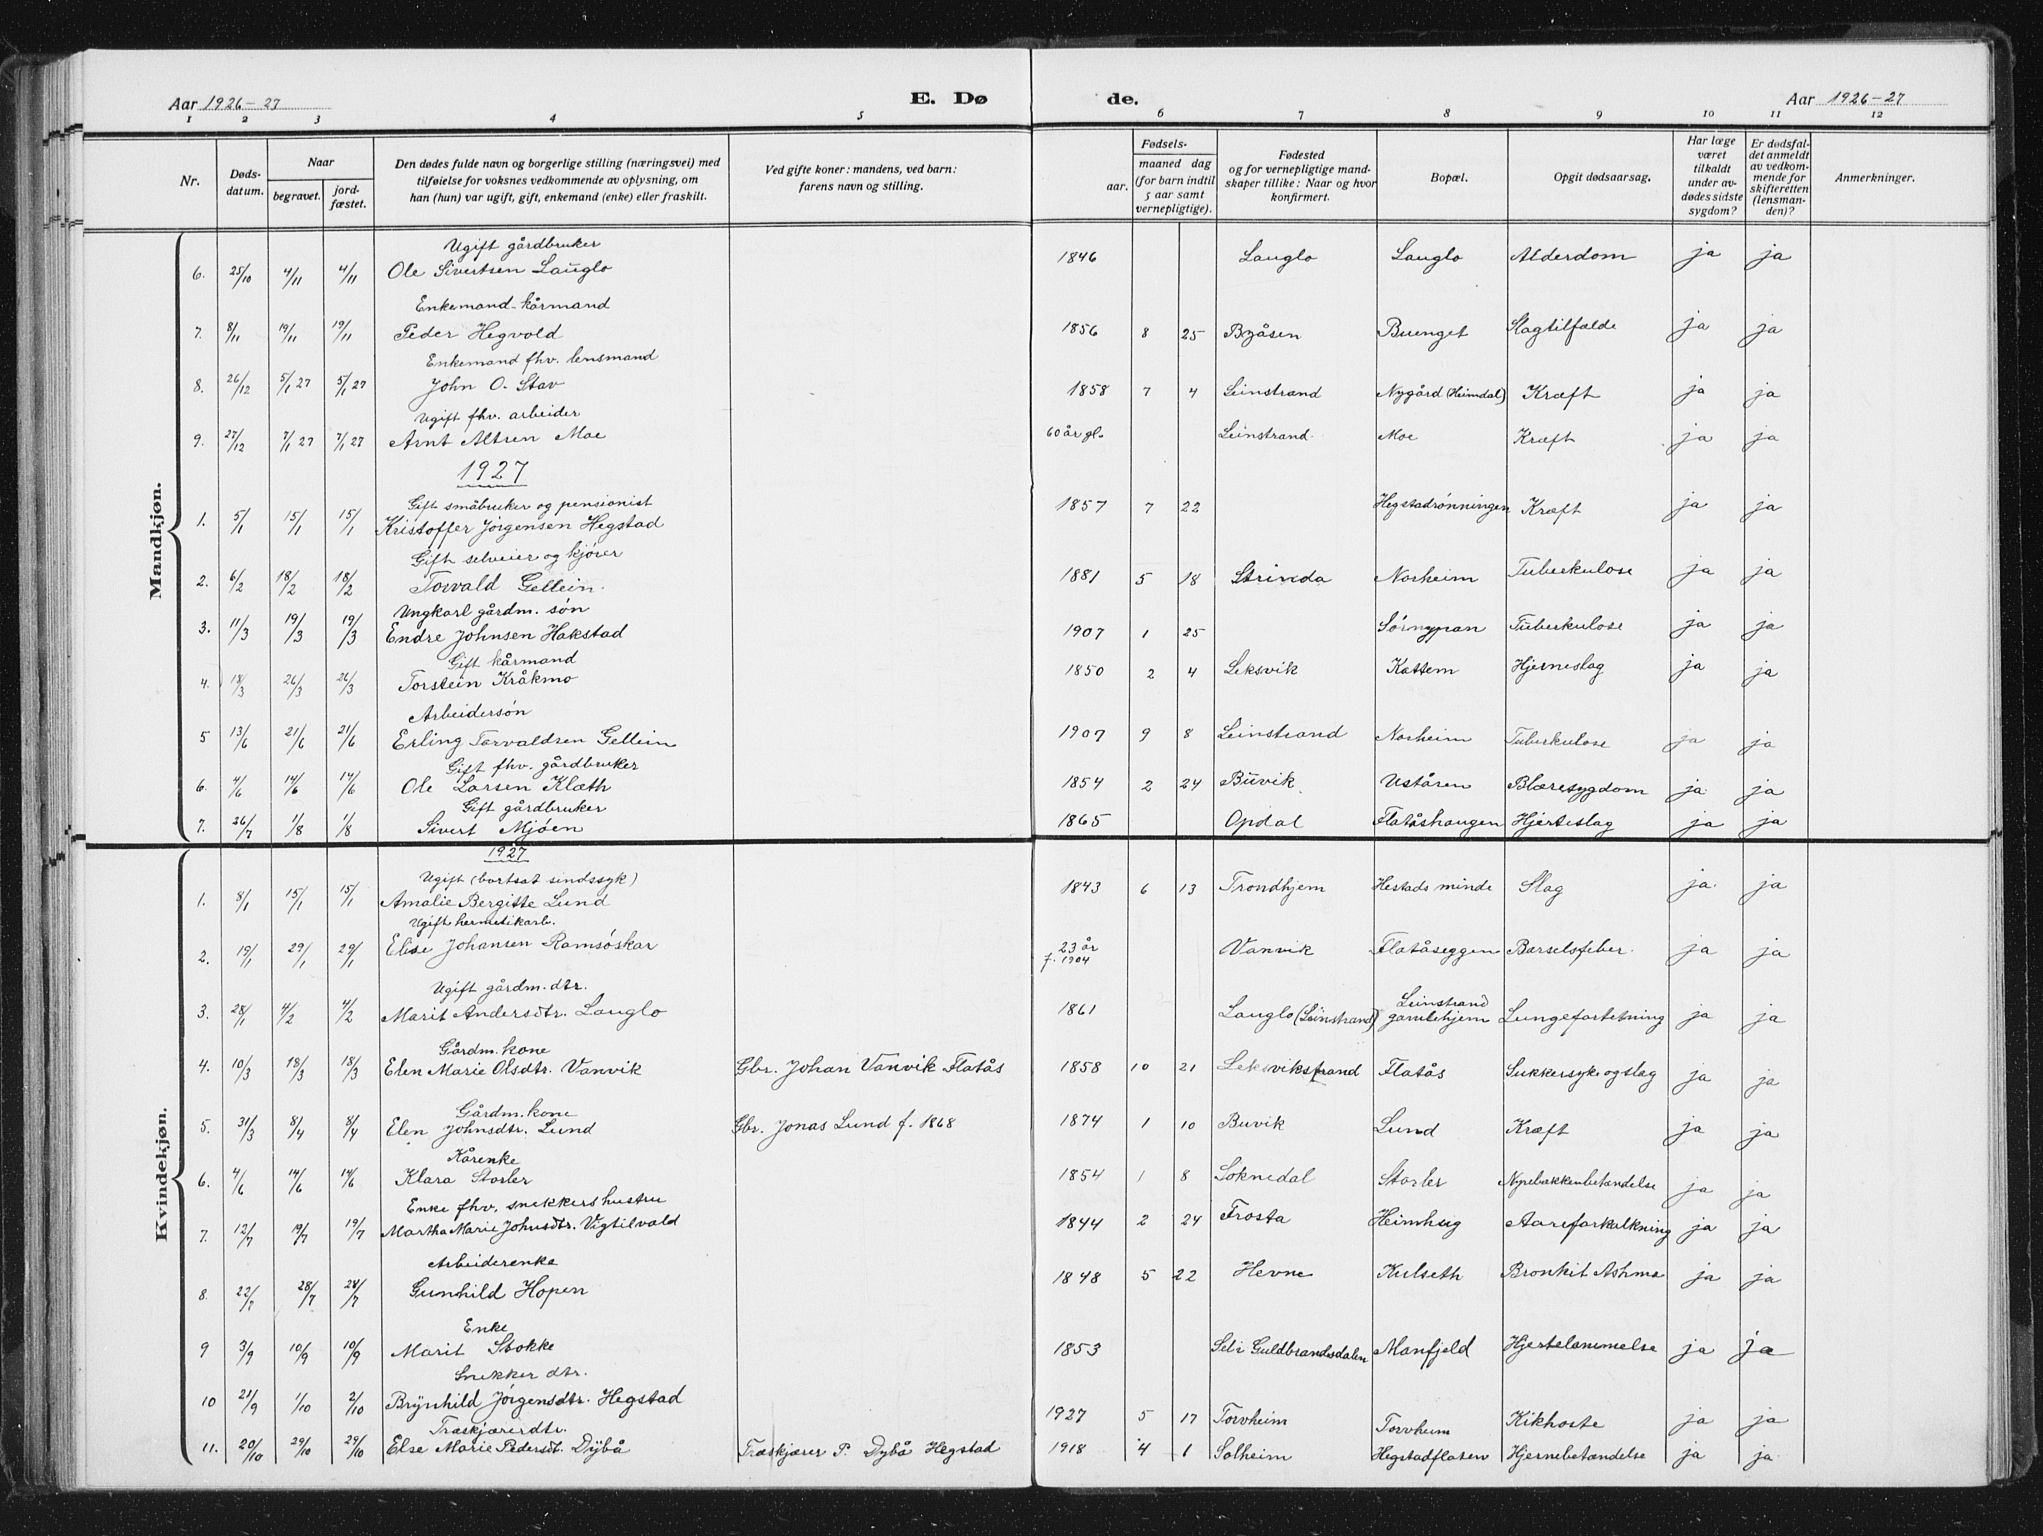 Aar 1926-27
E. Dø
de.
Aar 1926-27
1 2 3 4 5 6 7 8 9 10 11 12
Nr.
Døds-
datum.
Naar
begravet.
jord-
fæstet.
Den dødes fulde navn og borgerlige stilling (næringsvei) med
tilføielse for voksnes vedkommende av oplysning, om
han (hun) var ugift, gift, enkemand (enke) eller fraskilt.
Ved gifte koner: mandens, ved barn:
farens navn og stilling.
Fødsels-
aar.
maaned dag
(for barn indtil
5 aar samt
vernepligtige).
Fødested
og for vernepligtige mand-
skaper tillike: Naar og hvor
konfirmert.
Bopæl.
Opgit dødsaarsag.
Har læge
været
tilkaldt
under av-
dødes sidste
sygdom?
Er dødsfal-
det anmeldt
av vedkom-
mende for
skifteretten
(lensman-
den)?
Anmerkninger.
Mandkjøn.
Ugift gårdbruker
6. 25/10 4/11 4/11 Ole Sivertsen Lauglo 1846 Lauglo Lauglo Alderdom ja ja
Enkemand-kårmand
7. 8/11 19/11 19/11 Peder Hegvold 1856 8 25 Byåsen Buenget Slagtilfælde ja ja
Enkemand fhv. lensmand
8. 26/12 5/1 27 5/1 27 John O. Stav 1858 7 4 Leinstrand Nygård (Heimdal) Kræft ja ja
Ugift fhv. arbeider
9. 27/12 7/1 27 7/1 27 Arnt Altsen Moe 60 år gl. Leinstrand Moe Kræft ja ja
1927
Gift småbruker og pensionist
1. 5/1 15/1 15/1 Kristoffer Jørgensen Hegstad 1857 7 22 Hegstadrønningen Kræft ja ja
Gift selveier og kjører
2. 6/2 18/2 18/2 Torvald Gellein. 1881 5 18 Strinda Norheim Tuberkulose ja ja
Ungkarl gårdm. søn
3. 11/3 19/3 19/3 Endre Johnsen Hakstad 1907 1 25 Sørnypan Tuberkulose ja ja
Gift kårmand
4. 18/3 26/3 26/3 Torstein Kråkmo 1850 2 4 Leksvik Kattem Hjerneslag ja ja
Arbeidersøn
5 13/6 21/6 21/6 Erling Torvaldsen Gellein 1907 9 8 Leinstrand Norheim Tuberkulose ja ja
Gift fhv. gårdbruker
6. 4/6 14/6 14/6 Ole Larsen Klæth 1854 2 24 Buvik Uståren Blæresygdom ja ja
Gift gårdbruker
7. 26/7 1/8 1/8 Sivert Mjøen 1865 Opdal Flatåshaugen Hjerteslag ja ja
Kvindekjøn.
1927
Ugift (bortsat sindssyk)
1. 8/1 15/1 15/1 Amalie Bergitte Lund 1843 6 13 Trondhjem Hestads minde Slag ja ja
Ugift hermetikarb.
2. 19/1 29/1 29/1 Elise Johansen Ramsøskar 23 år f. 1904 Vanvik Flatåseggen Barselsfeber. ja ja
Ugift gårdm. dtr.
3. 28/1 4/2 4/2 Marit Andersdtr. Lauglo 1861 Lauglo (Leinstrand) Leinstrand gamlehjem Lungefortetning ja ja
Gårdm. kone
4. 10/3 18/3 18/3 Elen Marie Olsdtr. Vanvik Gbr. Johan Vanvik Flatås 1858 10 21 Leksvikstrand Flatås Sukkersyke og slag ja ja
Gårdm. kone
5. 31/3 8/4 8/4 Elen Johnsdtr. Lund Gbr. Jonas Lund f. 1868 1874 1 10 Buvik Lund Kræft ja ja
Kårenke
6. 4/6 14/6 14/6 Klara Storler 1854 1 8 Soknedal Storler Nyrebækkenbetændelse ja ja
Enke fhv. snekkers hustru
7. 12/7 19/7 19/7 Martha Marie Johnsdtr. Vigtilvald 1844 2 24 Frosta Heimhug Aareforkalkning ja ja
Arbeiderenke
8. 22/7 28/7 28/7 Gunhild Hopen 1848 5 22 Hevne Kulseth Bronkit Asthma ja ja
Enke
9 3/9 10/9 10/9 Marit Stokke 1853 Sel i Guldbrandsdalen Manfjeld Hjertelammelse ja ja
Snekker dtr.
10 21/9 1/10 2/10 Brynhild Jørgensdtr. Hegstad 1927 5 17 Torvheim Torvheim Kikhoste ja ja
Træskjærerdtr.
11. 20/10 29/10 29/10 Else Marie Pedersdt. Dybå Træskjærer P. Dybå Hegstad 1918 4 1 Solheim Hegstadflaten Hjernebetændelse ja ja